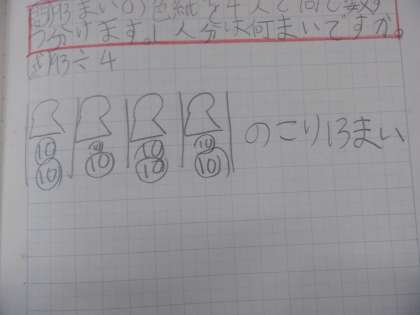 93まいの色紙を4人で同じ数ず
つ分けます。1人分は何まいですか。
式93÷4
10 10 10 10 のこり13まい
10 10 10 10